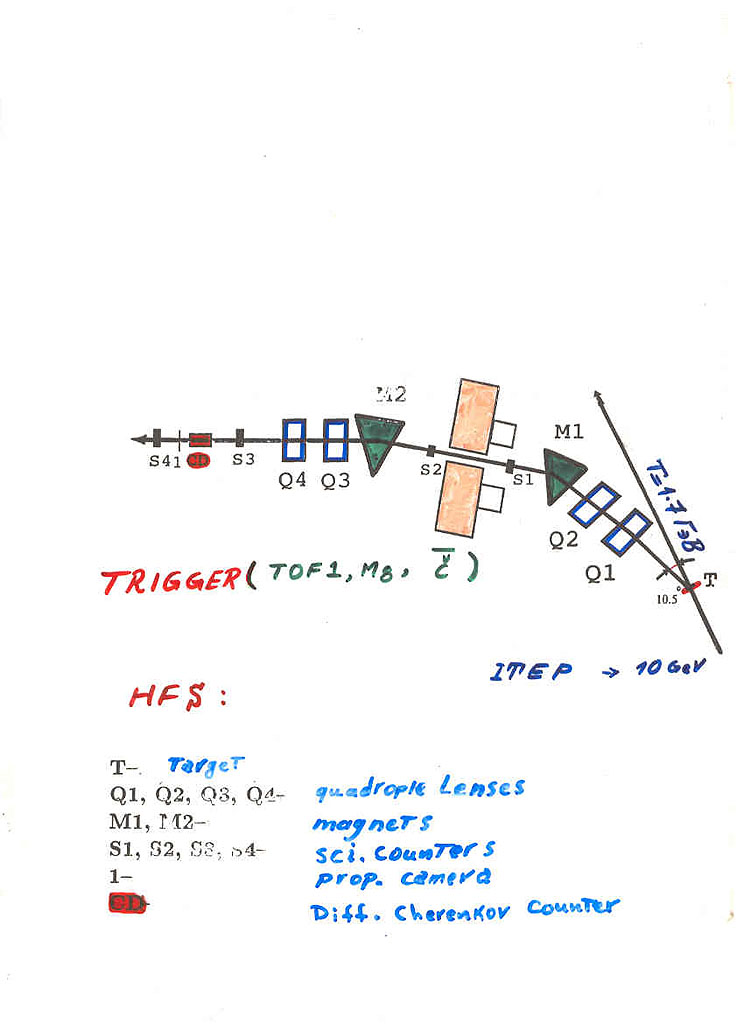 M2
M1
S4 1 CD S3
Q4 Q3
S2
S1
Q2
Q1
T=1.7 ГэВ
T
10.5°
TRIGGER ( TOF1, M8, C̄ )
ITEP → 10 GeV
HFS :
T– Target
Q1, Q2, Q3, Q4– quadrople Lenses
M1, M2– magnets
S1, S2, S3, S4– sci. counters
1– prop. camera
CD– Diff. Cherenkov counter